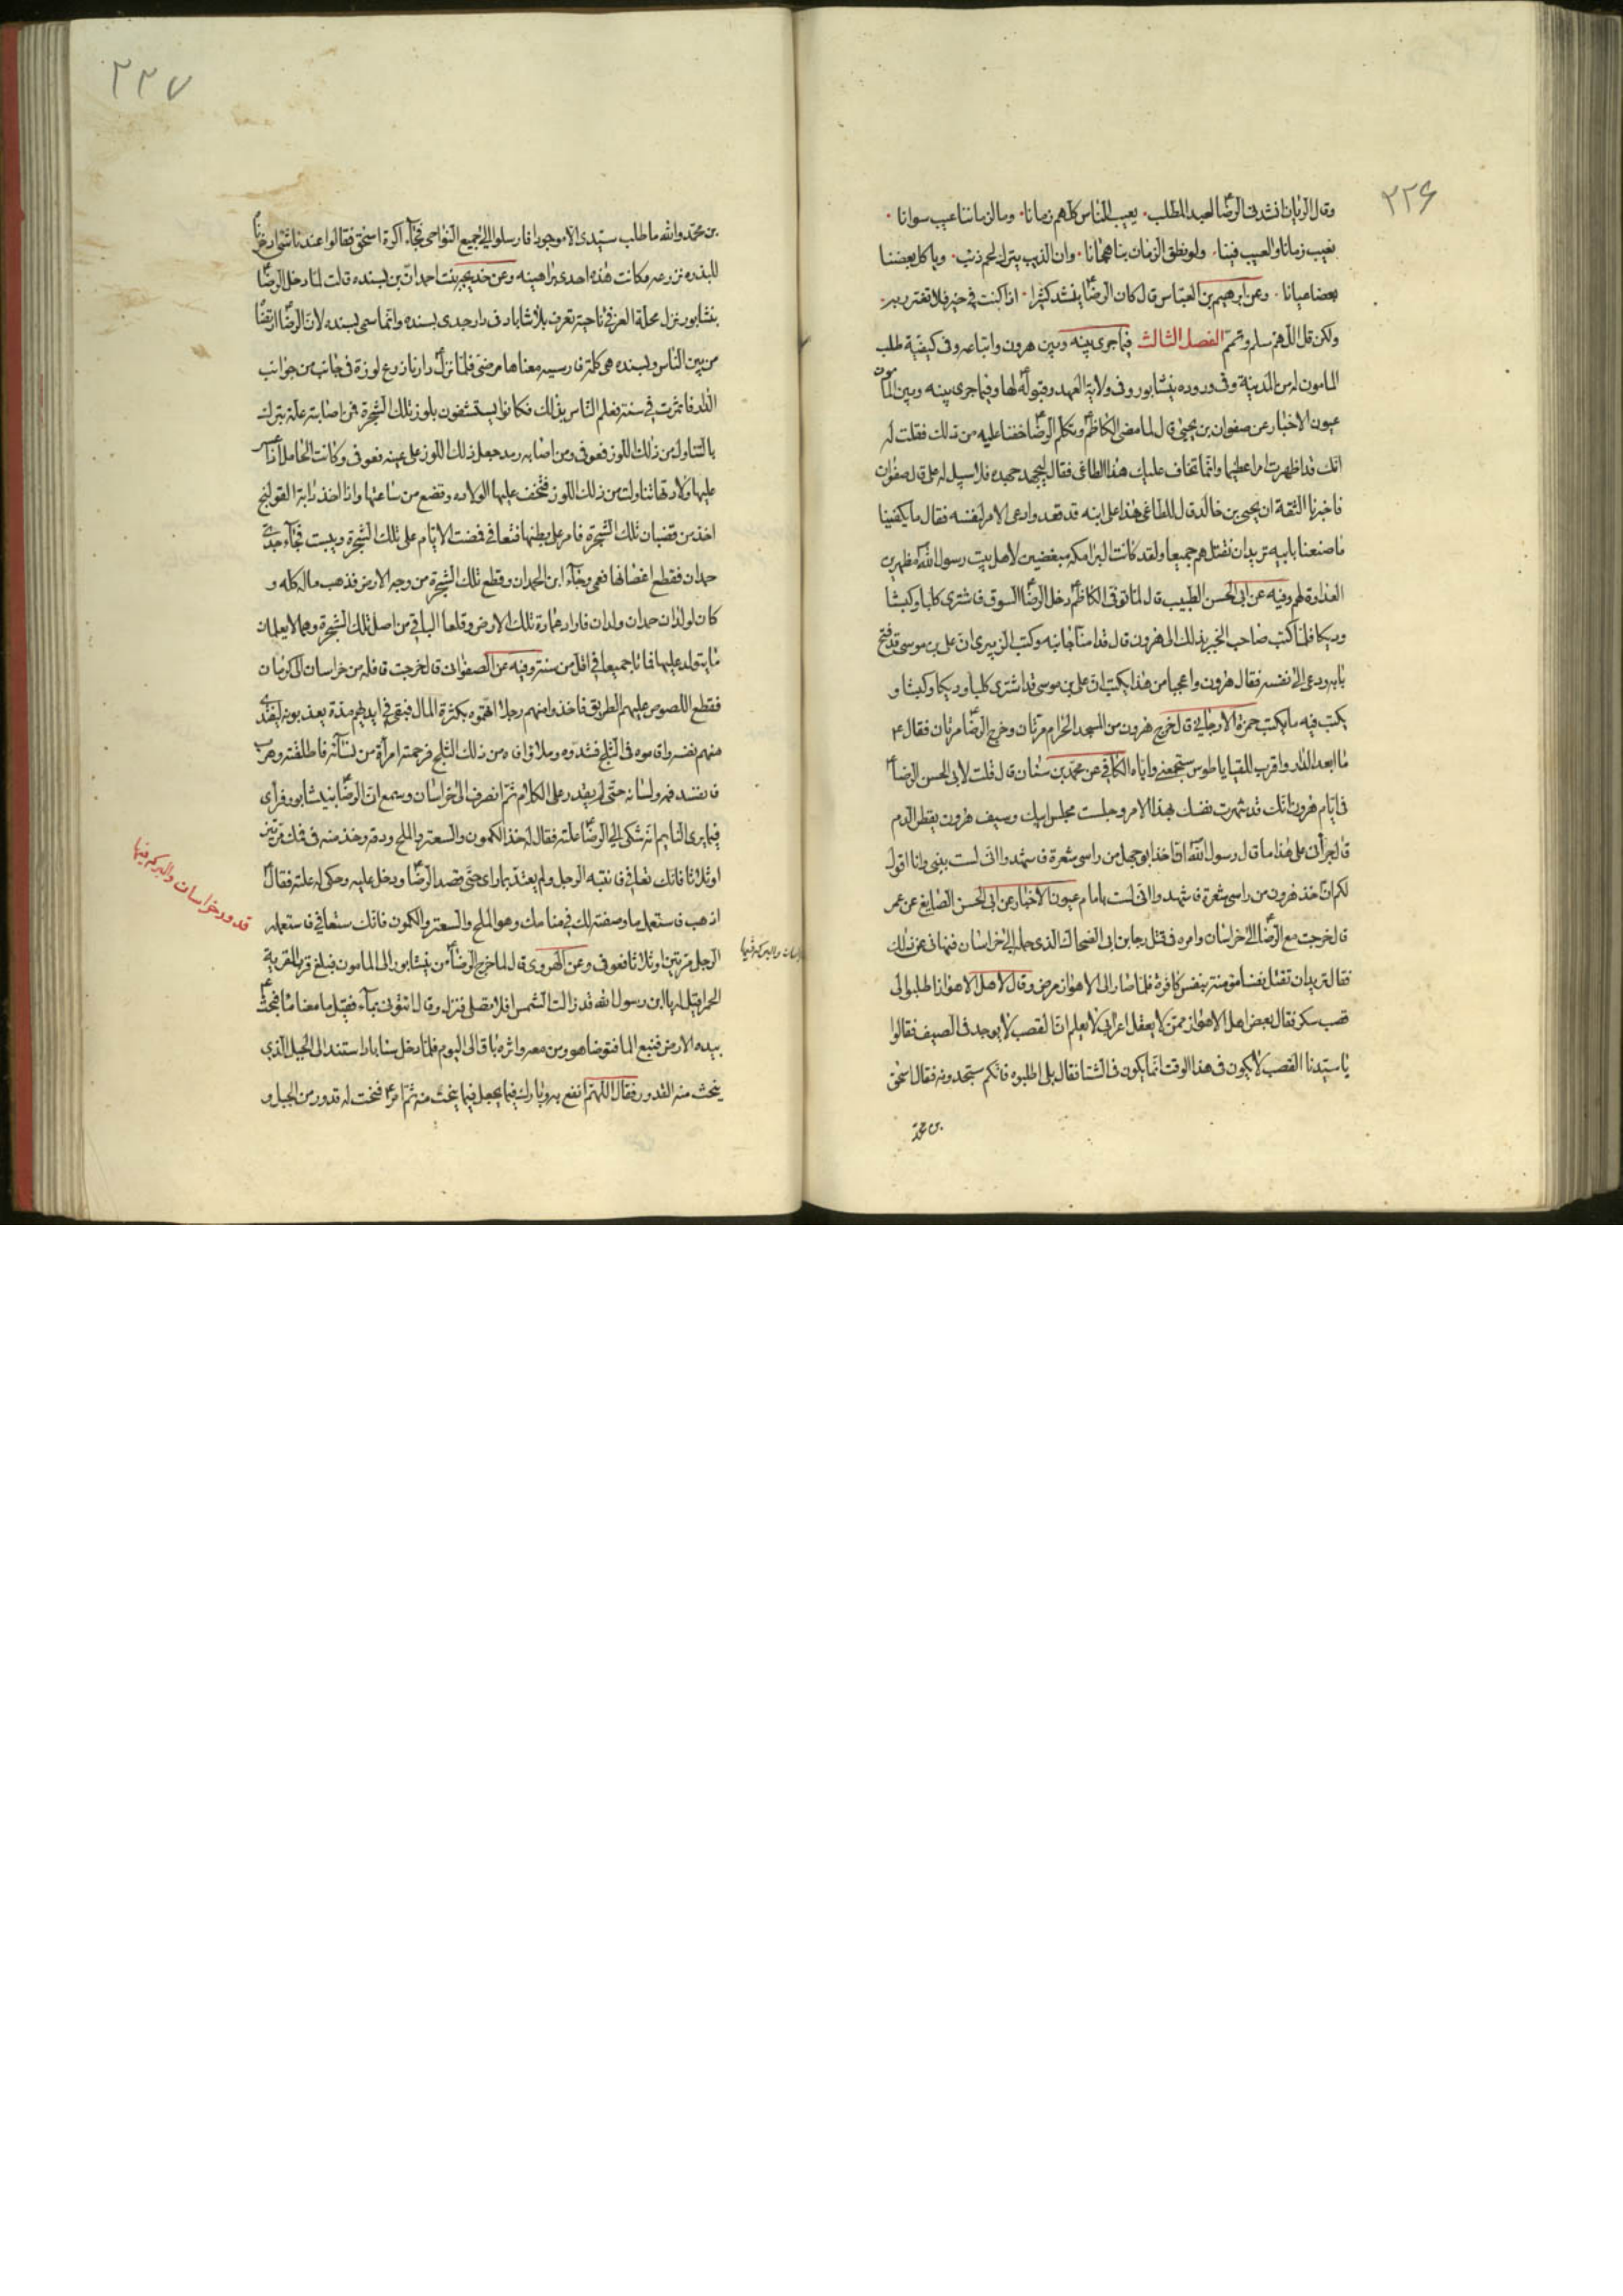 ۲۲۶
وقال الريان انشدني الرضا لعبد المطلب يعيب الناس كلهم زمانا وما لزماننا عيب سوانا
نعيب زماننا والعيب فينا ولو نطق الزمان بنا هجانا وان الذيب يترك لحم ذئب وياكل بعضنا
بعضا عيانا وعن ابرهيم بن العباس قال كان الرضا ينشد كثيرا اذا كنت في خير فلا تغترر به
ولكن قل اللهم سلم وتمم الفصل الثالث فيما جرى بينه وبين هرون واتباعه وفي كيفية طلب
المامون له من المدينة وفي وروده بنيشابور وفي ولاية العهد وقبوله لها وفيما جرى بينه وبين المامون
عيون الاخبار عن صفوان بن يحيى قال لما مضى الكاظم وتكلم الرضا خفنا عليه من ذلك فقلت له
انك قد اظهرت امرا عظيما وانما نخاف عليك هذا الطاغي فقال ليجهد جهده فلا سبيل له على قال صفوان
فاخبرنا الثقة ان يحيى بن خالد قال للطاغي هذا على ابنه قد قعد وادعى الامر لنفسه فقال ما يكفينا
ما صنعنا بابيه تريد ان نقتلهم جميعا ولقد كانت البرامكه مبغضين لاهل بيت رسول الله مظهرين
العداوة لهم وفيه عن ابى الحسن الطبيب قال لما توفى الكاظم دخل الرضا السوق فاشترى كلبا وكبشا
وديكا فلما كتب صاحب الخبر بذلك الى هرون قال قد امنا جانبه وكتب الزبيرى ان على بن موسى قد فتح
بابه ودعى الى نفسه فقال هرون واعجبا من هذا يكتب ان على بن موسى قد اشترى كلبا وديكا وكبشا و
يكتب فيه ما يكتب حمزة الارجاني قال خرج هرون من المسجد الحرام مرتان وخرج الرضا مرتان فقال ع
ما ابعد الدار واقرب اللقيا يا طوس ستجمعني واياه الكافي عن محمد بن سنان قال قلت لابى الحسن الرضا
في ايام هرون انك قد شهرت نفسك بهذا الامر وجلست مجلس ابيك وسيف هرون يقطر الدم
قال جرأني على هذا ما قال رسول الله ان اخذ ابو جهل من راسي شعرة فاشهدوا اني لست بنبي وانا اقول
لكم ان اخذ هرون من راسي شعرة فاشهدوا اني لست بامام عيون الاخبار عن ابى الحسن الصايغ عن عمه
قال خرجت مع الرضا الى خراسان وامره في قتل رجا بن ابى الضحاك الذى حمله الى خراسان فنهاني عن ذلك
فقال تريد ان تقتل نفسا مؤمنة بنفس كافرة فلما صار الى الاهواز مرض وقال لاهل الاهواز اطلبوا لى
قصب سكر فقال بعض اهل الاهواز ممن لا يعقل اعرابي لا يعلم ان القصب لا يوجد في الصيف فقالوا
يا سيدنا القصب لا يكون في هذا الوقت انما يكون في الشتا فقال بلى اطلبوه فانكم ستجدونه فقال اسحق
بن محمد
۲۲۷
بن محمد والله ما طلب سيدى الا موجودا فارسلوا الى جميع النواحى فجآء اكرة اسحق فقالوا عندنا شئ ادخرناه
للبذره نزرعه وكانت هذه احدى براهينه وعن خديجه بنت احمدان بن پسنده قالت لما دخل الرضا
بنشابور نزل محلة الغز في ناحية تعرف بلاشاباد في دار جدى پسنده وانما سمى پسنده لان الرضا ارتضاه
من بين الناس وپسنده هى كلمة فارسيه معناها مرضى فلما نزل دارنا زرع لوزة في جانب من جوانب
الدار فاثمرت في سنة فعلم الناس بذلك فكانوا يستشفون بلوز تلك الشجرة فمن اصابته علة تبرك
بالتناول من ذلك اللوز فعوفى ومن اصابه رمد جعل ذلك اللوز على عينه فعوفى وكانت الحامل اذا عسر
عليها ولادتها تناولت من ذلك اللوز فتخف عليها الولاده وتضع من ساعتها واذا اخذ دابة القولنج
اخذ من قضبان تلك الشجرة فامر على بطنها فتعافى فمضت الايام على تلك الشجرة ويبست فجآء جدى
حمدان فقطع اغضانها فعمى وجآء ابن لحمدان وقطع تلك الشجرة من وجه الارض فذهب ماله كله و
كان لولد ان حمدان ولدان فارادا عمارة تلك الارض وقلعا الباقي من اصل تلك الشجرة وهما لا يعلمان
ما يتولد عليهما فماتا جميعا في اقل من سنة وفيه عن الصفواني قال خرجت قافلة من خراسان الى كرمان
فقطع اللصوص عليهم الطريق فاخذوا منهم رجلا اتهموه بكثرة المال فبقى في ايديهم مدة يعذبونه ليفتدى
منهم نفسه واقاموه في الثلج فشدوه وملاؤا فاه من ذلك الثلج فرحمته امرأة من نسآئهم فاطلقته وهرب
فانفسد فمه ولسانه حتى لم يقدر على الكلام ثم انصرف الى خراسان وسمع ان الرضا بنيشابور فرأى
فيما يرى النايم انه شكى الى الرضا علته فقال له خذ الكمون والسعتر والملح ودقه وخذ منه في فمك مرتين
او ثلاثا فانك تعافى فانتبه الرجل ولم يعتد بما راى حتى قصد الرضا ودخل عليه وحكى له علته فقال
اذهب فاستعمل ما وصفته لك في منامك وهو الملح والسعتر والكمون فانك ستعافى فاستعمله
الرجل مرتين او ثلاثا فعوفى وعن الهروى قال لما خرج الرضا من نيشابور الى المامون فبلغ قرب القرية
الحمرا قيل له يا ابن رسول الله قد زالت الشمس افلا تصلى فنزل وقال ائتوني بمآء فقيل ما معنا مآء فبحث
بيده الارض فنبع الما فتوضا هو ومن معه واثره باق الى اليوم فلما دخل سناباد استند الى الجبل الذى
ينحت منه القدور فقال اللهم انفع به وبارك فيما يجعل فيما ينحت منه ثم امر فنحت له قدور من الجبل و
قدور خراسان والبركه فيها